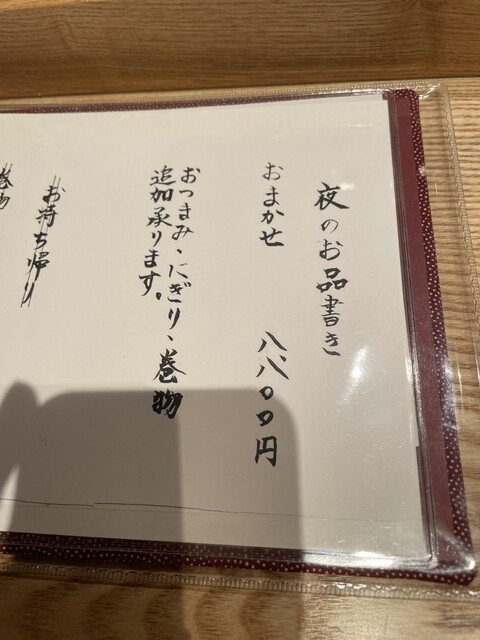 夜のお品書き
おまかせ 八、八〇〇円
おつまみ、にぎり、巻物
追加承ります。
お持ち帰り
巻物